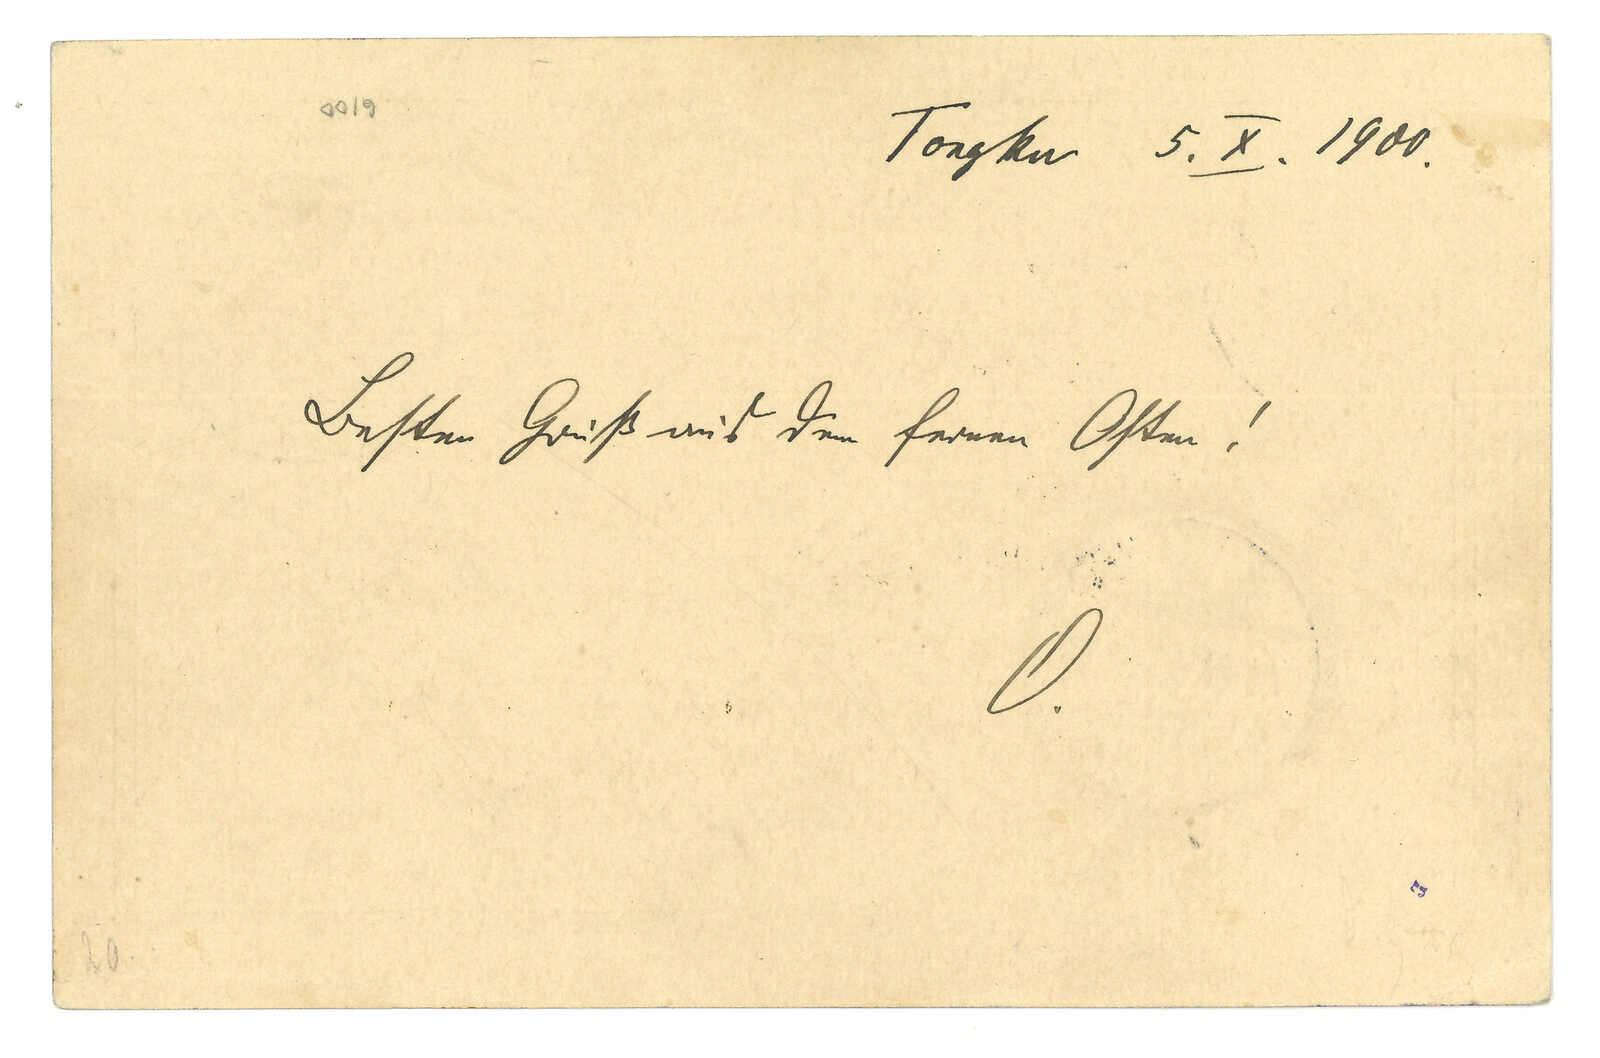 0019
Tongku 5. X. 1900.
Besten Gruß aus dem fernen Osten!
O.
20.